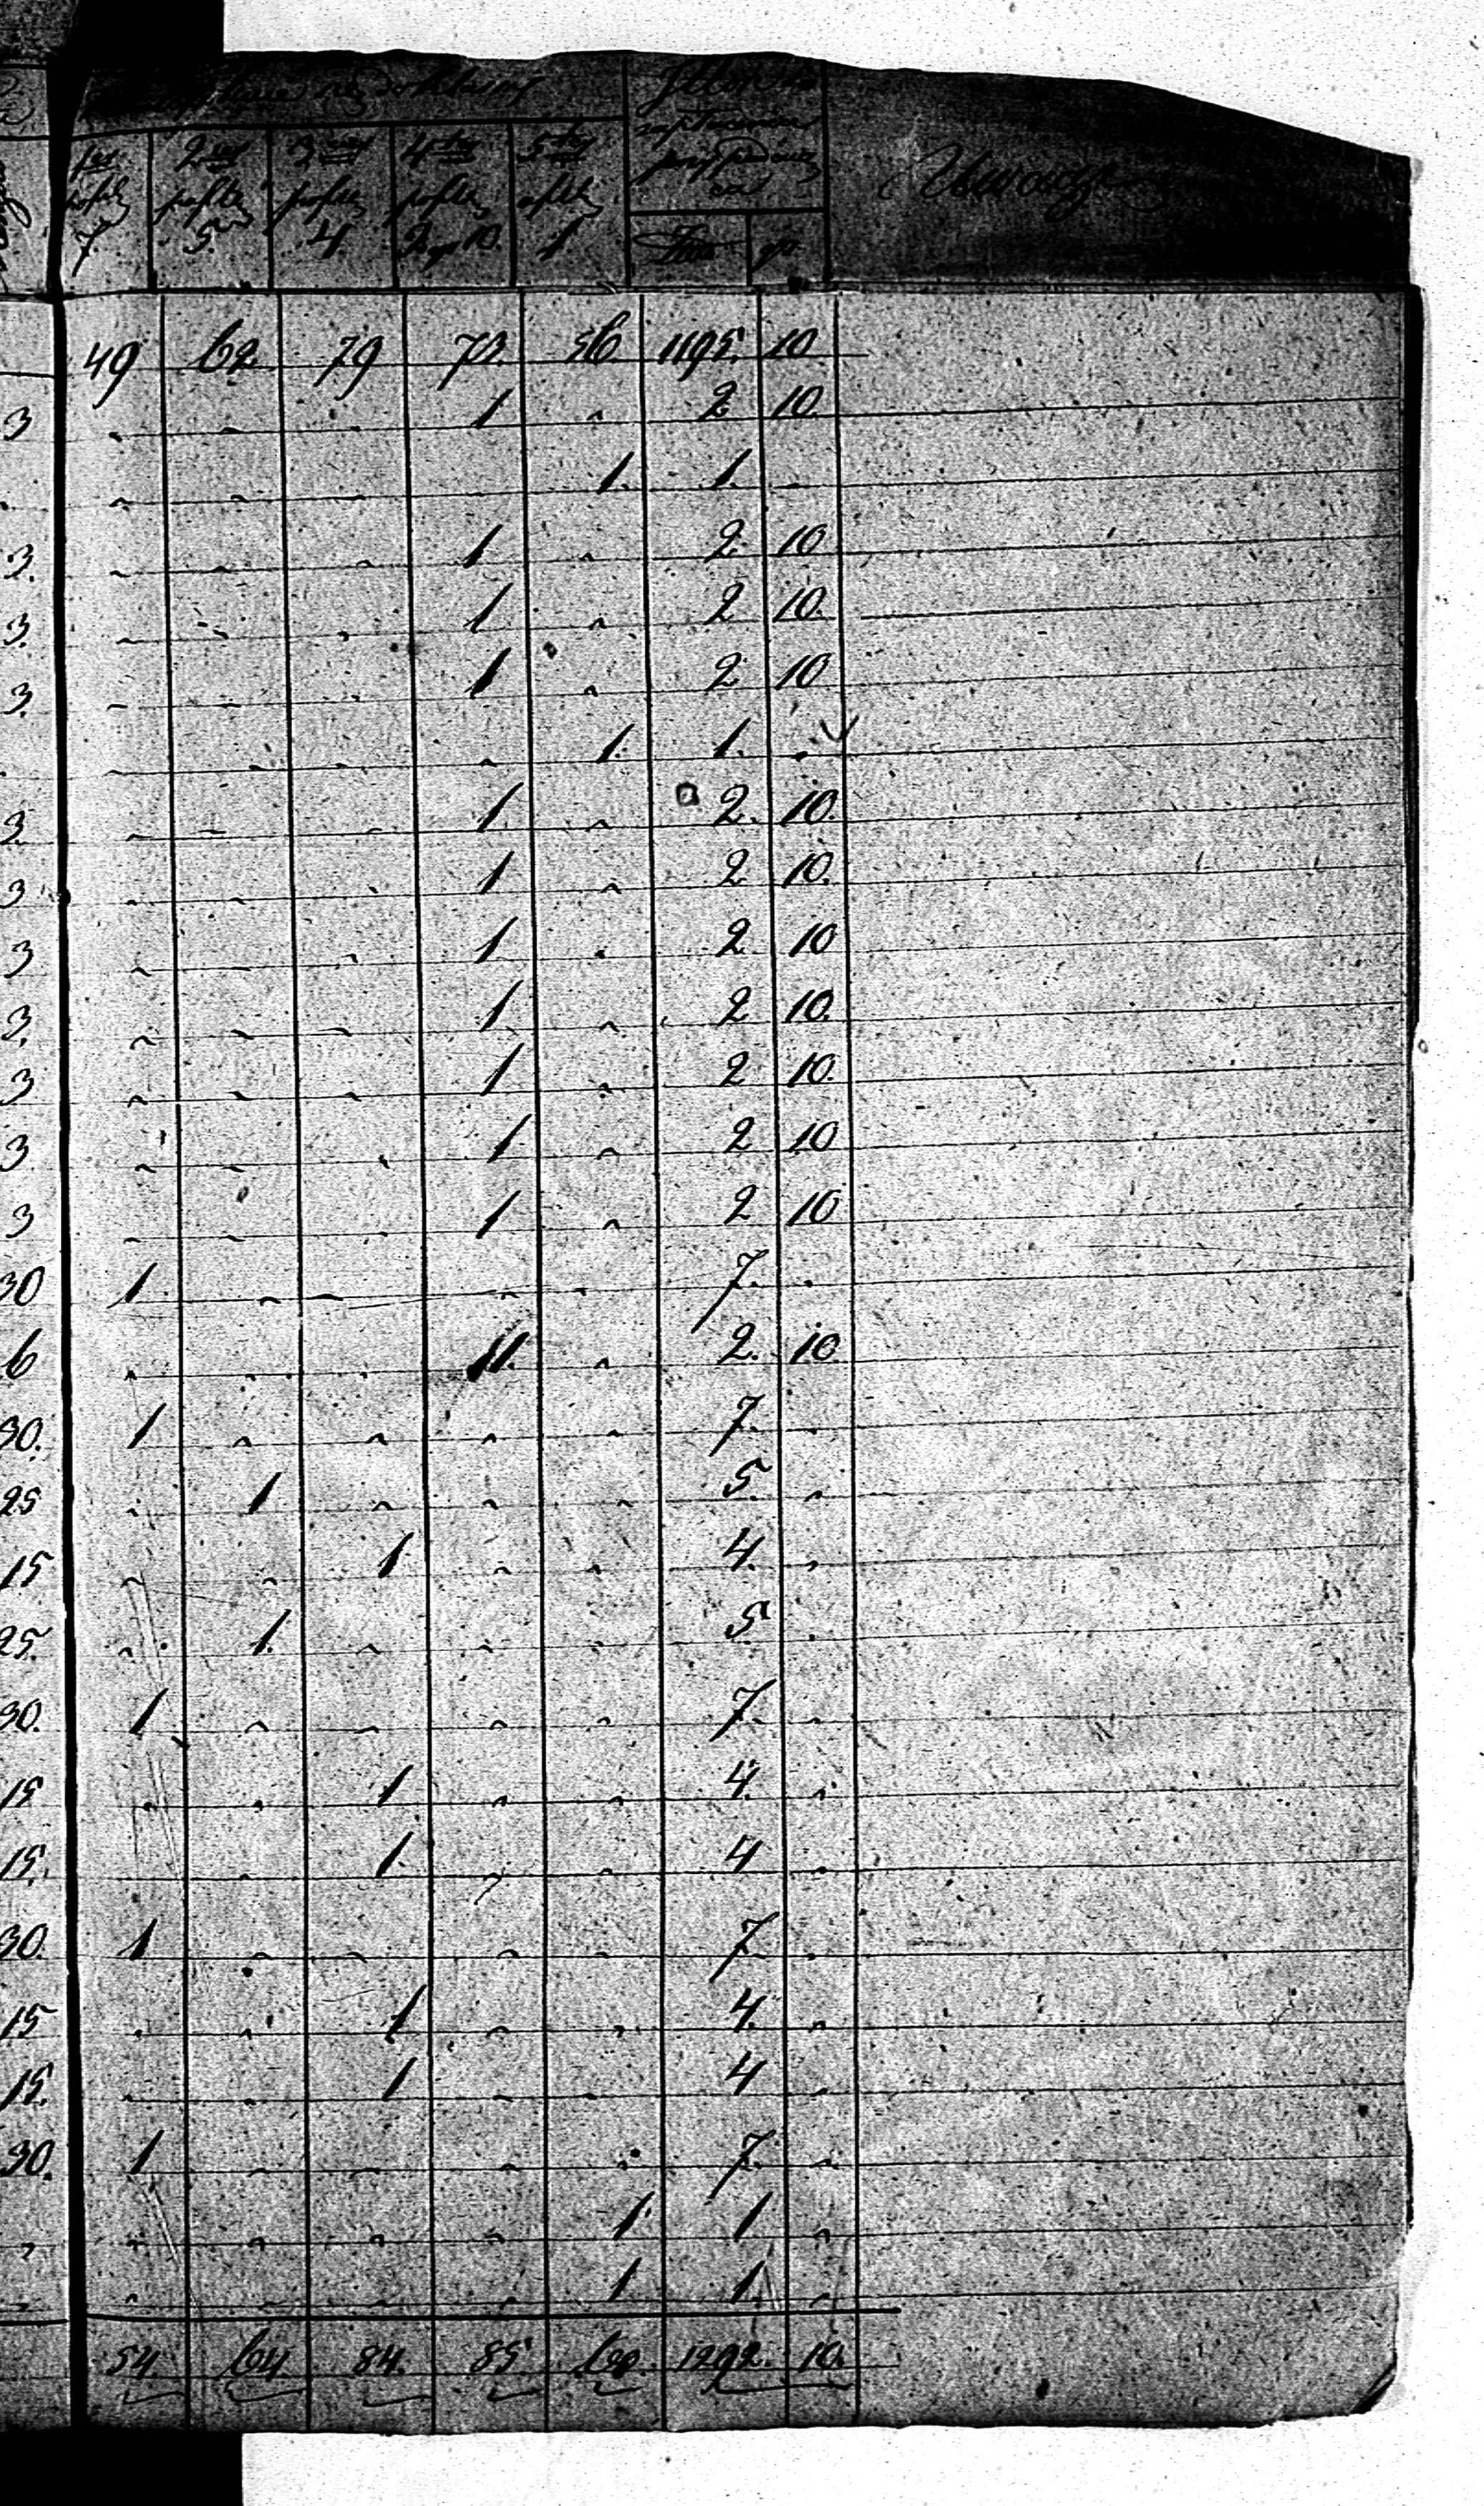 7. 5. 4. 2 10. 1
49 62 79 73 56 1195. 10
3 " " " 1 " 2 10.
. " " " 1. 1. "
3. " " " 1 " 2. 10
3. " " " 1 " 2 10.
3. " " " 1 " 2 10
. " " " " 1. 1. "
3. " " " 1. " 2. 10.
3 " " " 1 " 2 10.
3 " " " 1 " 2 10
3. " " " 1 " 2 10.
3 " " " 1 " 2 10.
3 " " " 1 " 2 10
3 " " " 1 " 2 10
30 1. " " " " 7. "
6 " " " 1. " 2. 10.
30. 1 " " " " 7. "
25 " 1 " " " 5. "
15 " " 1 " " 4. "
25. " 1. " " " 5 "
30. 1 " " " " 7. "
15 " " 1 " " 4. "
15. " " 1. " " 4 "
30. 1 " " " " 7 "
15 " " 1 " " 4. "
15. " " 1 " " 4 "
30. 1 " " " " 7. "
" " " " " 1. 1 "
" " " " " 1 1. "
54. 64 84. 85 60. 1292. 10.